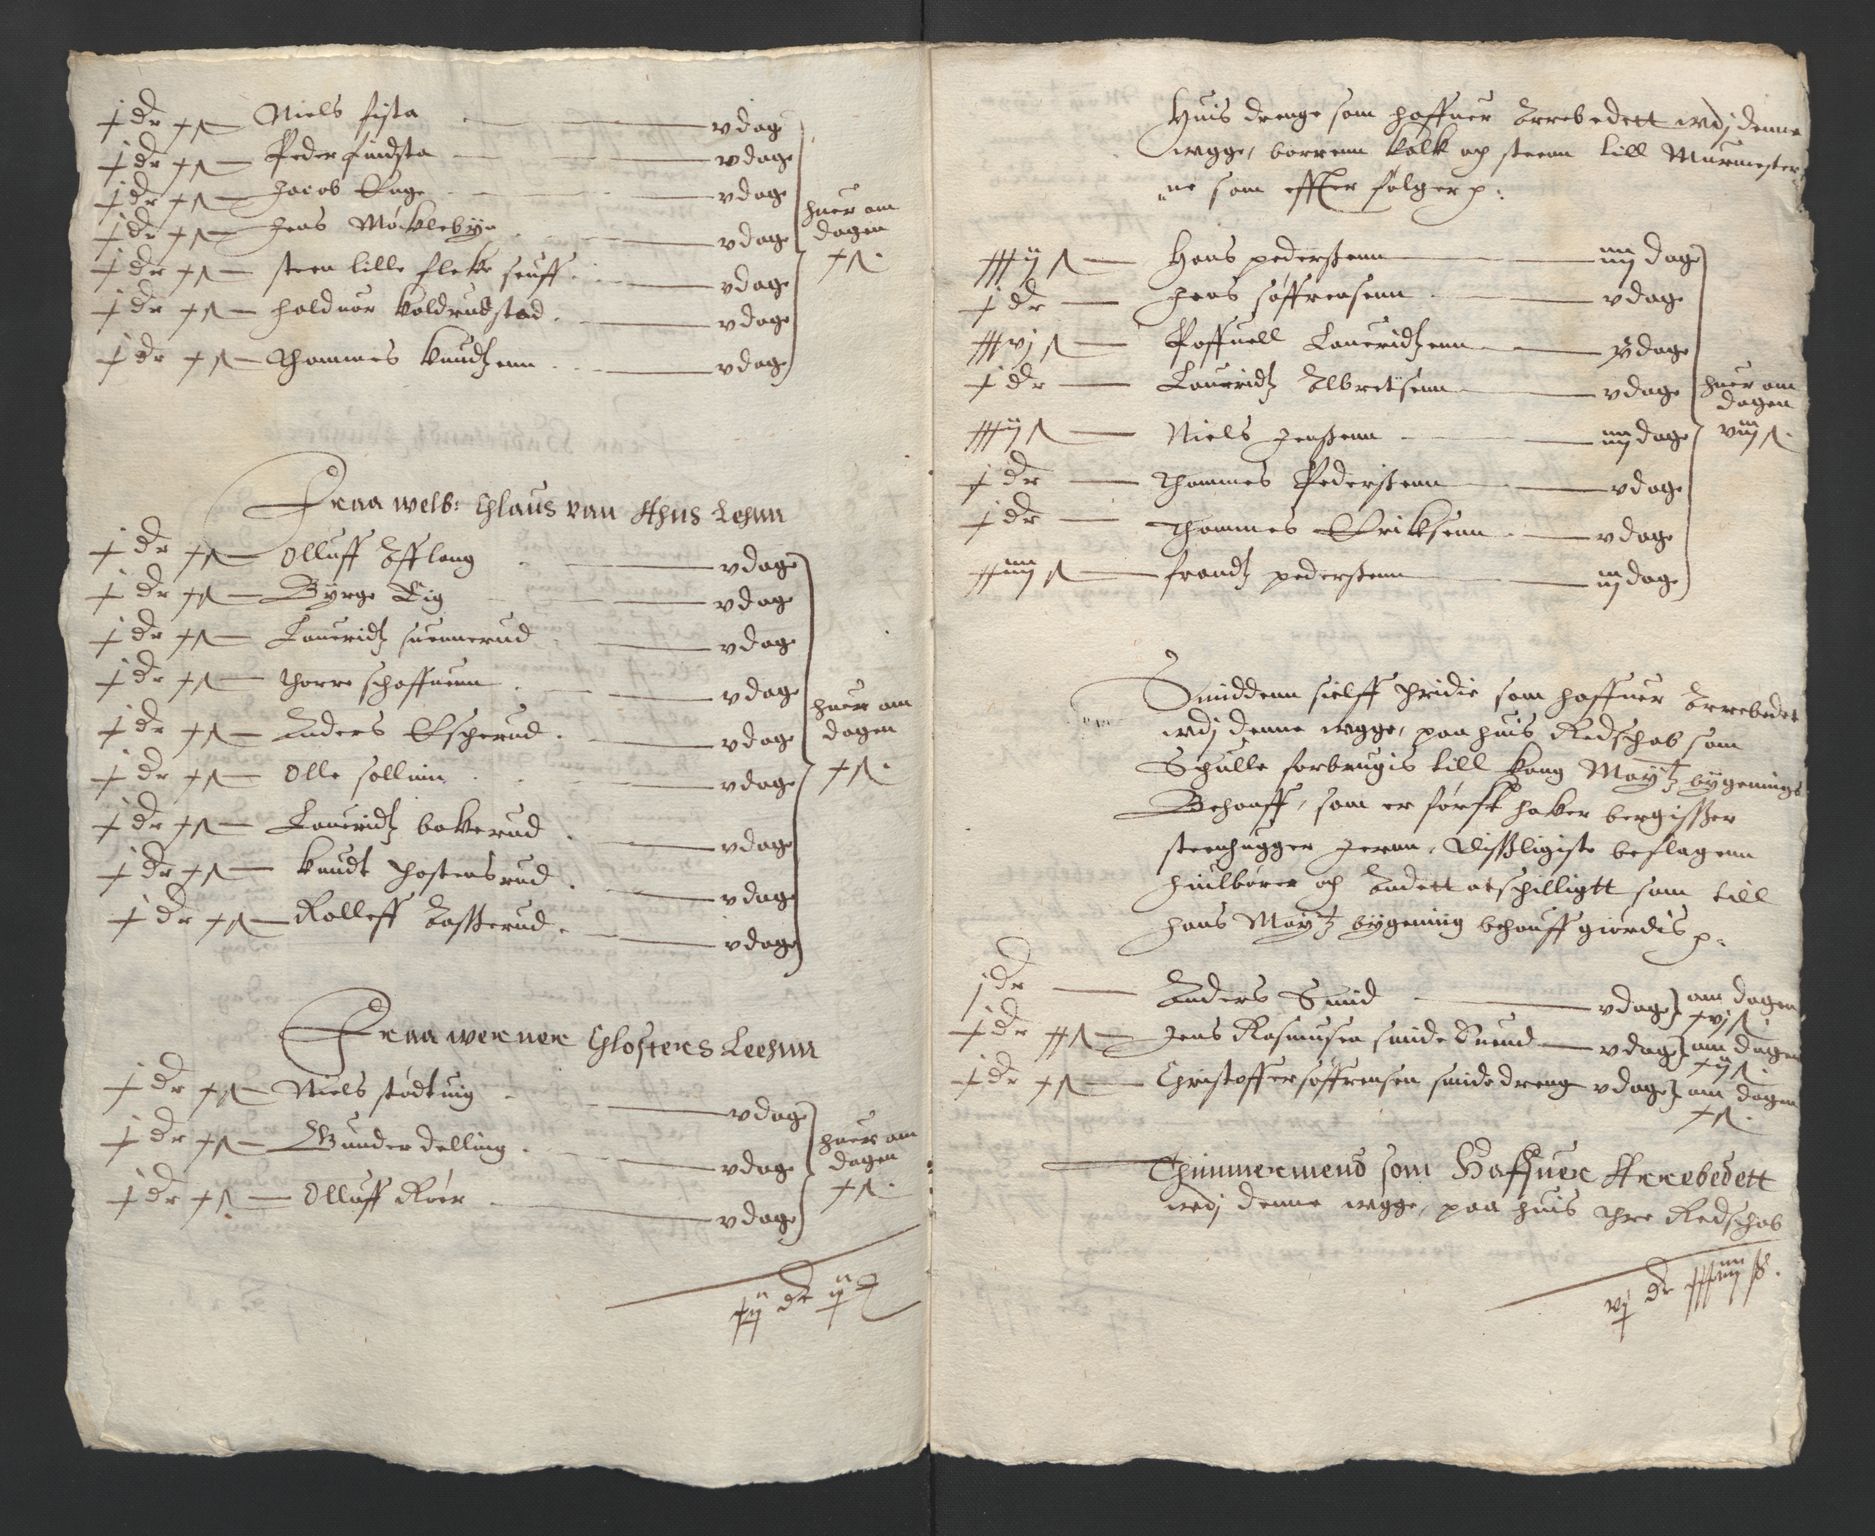 j dr xß — Niels fista — v dage
j dr xß — Peder findsta — v dage
j dr xß — Jacob Enge — v dage
j dr xß — Jens Møklebye — v dage
j dr xß — steen lille fleke — v dage
j dr xß — Holduor koldrudstad — v dage
j dr xß — Thommes knudtzenn — v dage
huer om
dagen
xß.
Fraa welb: Chlaus van Ahns Lehnn
j dr xß — Olluff Afflang — v dage
j dr xß — Byrge Lig — v dage
j dr xß — Lauridtz suennerud — v dage
j dr xß — thorre schoffuenn — v dage
j dr xß — Anders Escherud — v dage
j dr xß — Olle sollium — v dage
j dr xß — Lauridtz bakerud — v dage
j dr xß — knudt thostensrud — v dage
j dr xß — Rolleff Aasserud — v dage
huer om
dagen
xß.
Fraa werner Closters Leehnn
j dr xß — Niels stødtuig — v dage
j dr xß — Gunder delling — v dage
j dr xß — Olluff Røer — v dage
huer om
dagen
xß.
Huis drenge som haffuer Arrebedett wdj denne
wgge, borrenn kalk och steen till Murmester
ne som effter følger p:
xxxijß — Hans pederssenn — iiij dage
j dr — Hans søffrensenn — v dage
xxxvjß — Poffuell Lauridtzenn — v dage
j dr — Lauridtz Albretsenn — v dage
xxxijß — Niels Jenssenn — iiij dage
j dr — Thommes Pederssenn — v dage
j dr — Thommes Erikssenn — v dage
xxiiijß — frandtz pederssenn — iij dage
huer om
dagen
viijß.
Smiddenn sielff thridie som haffuer Arrebedet
wdj denne wgge, paa huis Redschab som
Schulle forbrugis till kong Maytz bygenings
Behouff, som er først haker bergisszer
steenhugger Jernn, Disligiste beslagenn
Hiulbører och Andett atschilligtt som till
hans Maytz bygening behouff giordis p:
j dr — Anders Smid — v dage om dagen
xvjß
j dr xxß — Jens Rasmusen smide Suend — v dage om dagen
xijß
j dr xß — Christoffer søffrensen smide dreng v dage om dagen
xß.
Thimmermend som Haffuer Arrebedett
wdj denne wgge, paa huis thre Redschab
vj dr xxxiiijß.